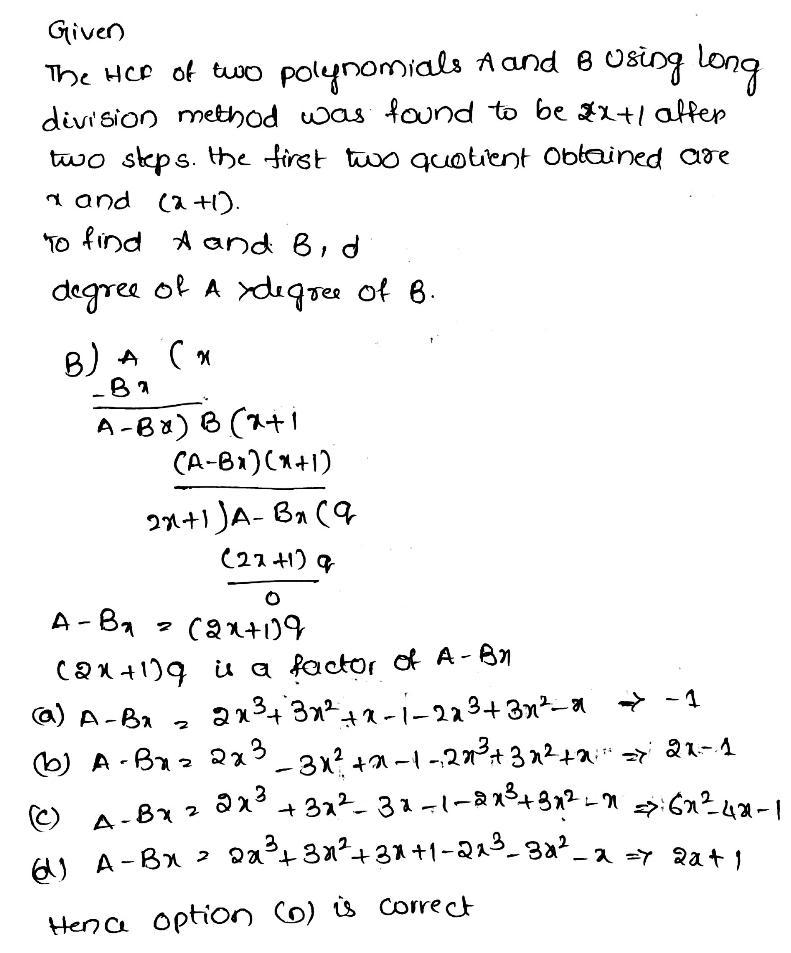 Given
The HCF of two polynomials A and B Using long
division method was found to be 2x+1 after
two steps. the first two quotient Obtained are
x and (x+1).
To find A and B, d
degree of A > degree of B.
B) A ( x
-Bx
A-Bx) B (x+1
(A-Bx)(x+1)
2x+1 )A- Bx (q
(2x+1) q
0
A - Bx = (2x+1)q
(2x+1)q is a factor of A-Bx
(a) A-Bx = 2x³+3x²+x-1-2x³+3x²-x → -1
(b) A-Bx = 2x³-3x²+x-1-2x³+3x²+x ⇒ 2x-1
(c) A-Bx = 2x³+3x²-3x-1-2x³+3x²-x ⇒ 6x²-4x-1
(d) A-Bx = 2x³+3x²+3x+1-2x³-3x²-x ⇒ 2x+1
Hence option (D) is correct